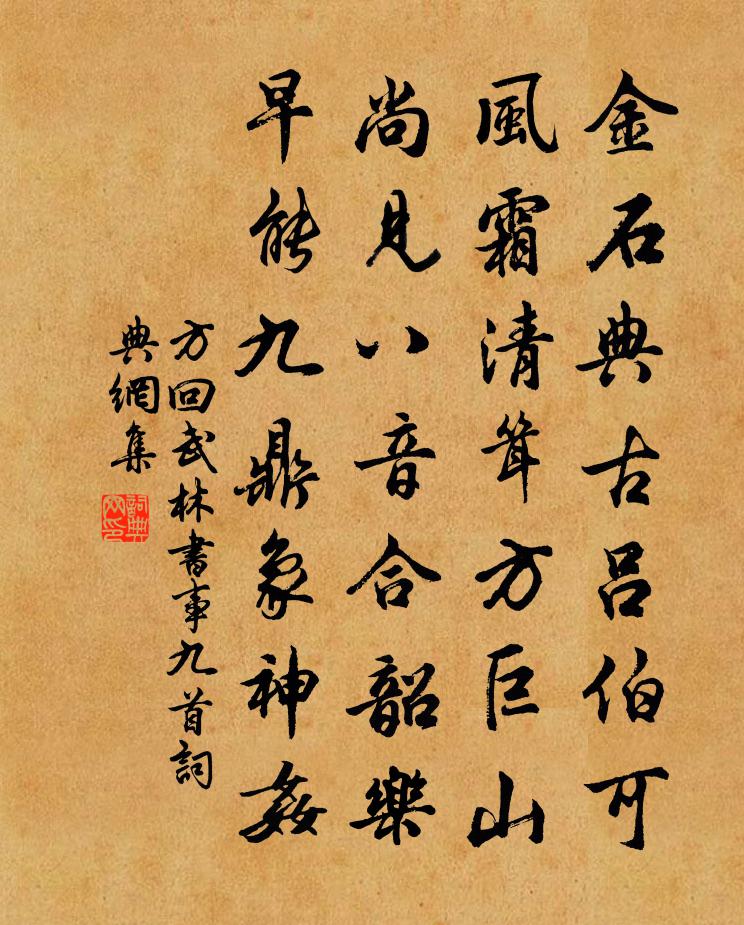 金石典古吕伯可
風霜清聳方巨山
尚見八音合韶樂
早能九鼎象神姦
方回武林書事九首詞
典網集
詞典
网印